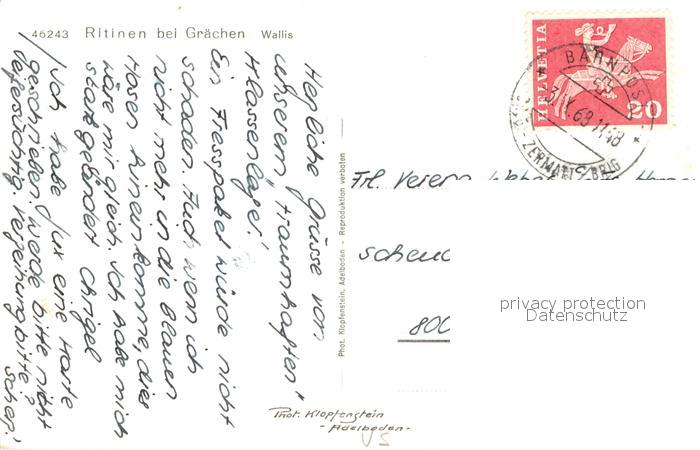 46243 Ritinen bei Grächen Wallis
Herzliche Grüsse von
unserem "traumhaften"
Klassenlager!
Ein Fresspaket würde nicht
schaden. Auch wenn ich
nicht mehr in die blauen
Hosen hineinkomme, dies
wäre mir gleich. Ich habe mich
stark geändert Chrigel
Ich habe Jux eine Karte
geschrieben, werde bitte nicht
eifersüchtig. Verzeihung bitte?
Phot. Klopfenstein, Adelboden - Reproduktion verboten
HELVETIA
20
BAHNPOST
ZERMATT - BRIG
Frl.
800
privacy protection
Datenschutz
Phot. Klopfenstein
- Adelboden -